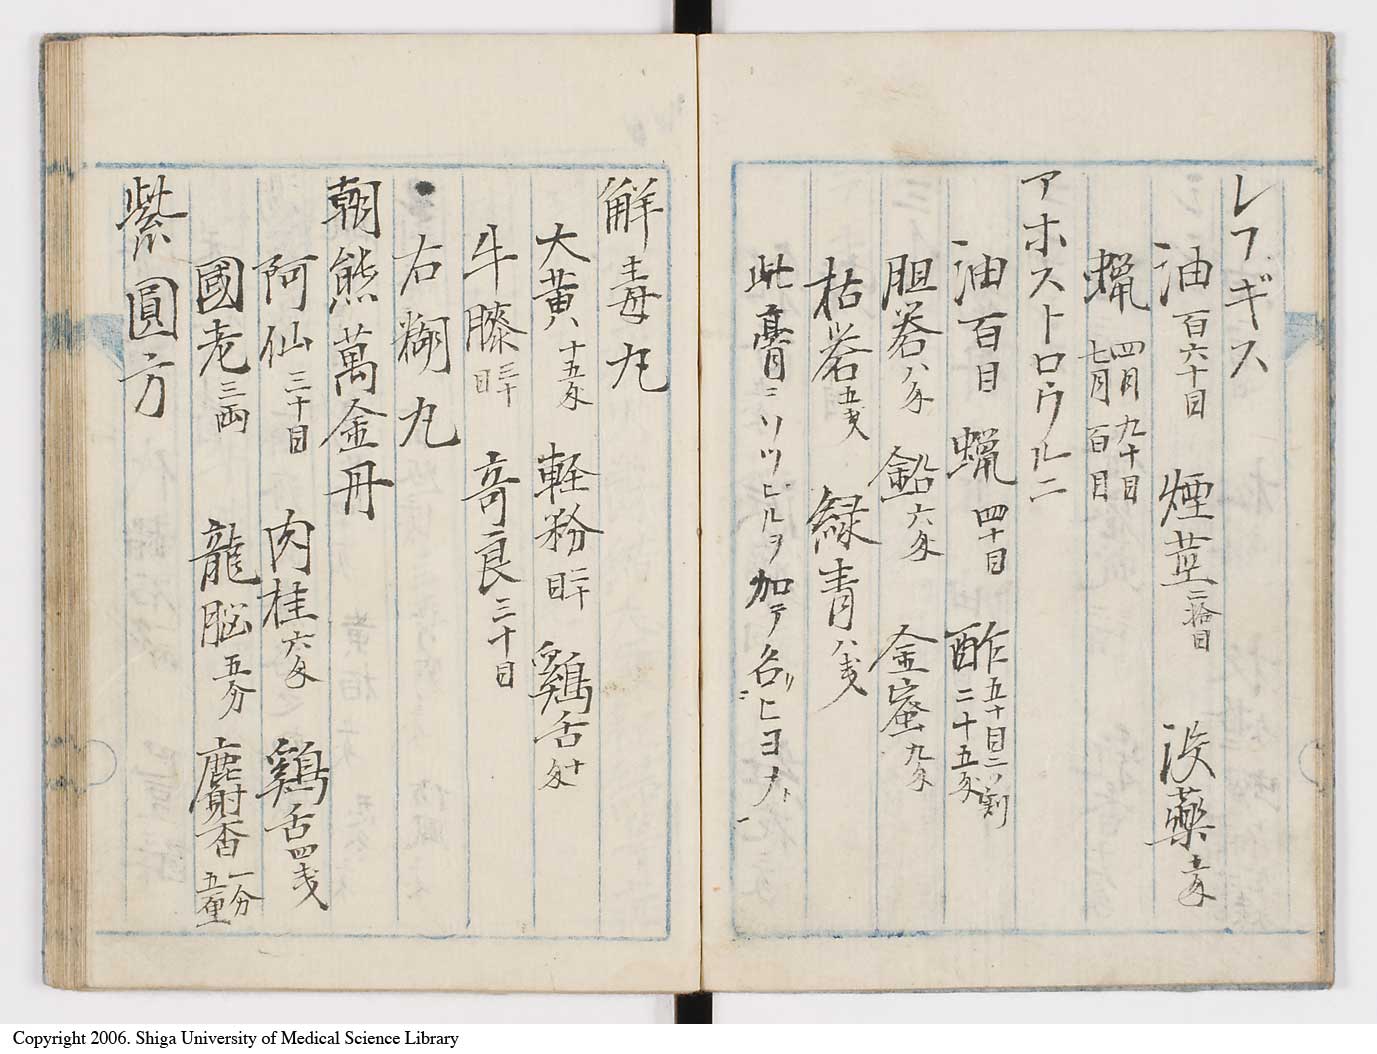 レフギス
油 百六十目 煙草 二拾目 没薬 五匁
蝋 四月 九十目
七月 百目
アホストロウルニ
油 百目 蝋 四十目 酢 五十目二ツ割 二十五匁
胆礬 八匁 鉛 六匁 金蜜 九匁
枯礬 五戋 緑青 八戋
此膏ニソツヒルヲ加テ名
解毒丸
大黄 十五匁 軽粉 二十目 鶏舌 十匁
牛膝 三十目 奇良 三十目
右糊丸
朝熊萬金丹
阿仙 三十目 肉桂 六匁 鶏舌 四戋
國老 三両 龍脳 五分 麝香 一分五厘
紫圓方
Copyright 2006. Shiga University of Medical Science Library